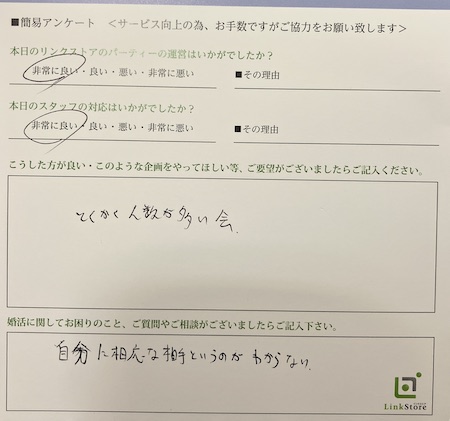 ■簡易アンケート　＜サービス向上の為、お手数ですがご協力をお願い致します＞
本日のリンクストアのパーティーの運営はいかがでしたか？
非常に良い・良い・悪い・非常に悪い　■その理由
本日のスタッフの対応はいかがでしたか？
非常に良い・良い・悪い・非常に悪い　■その理由
こうした方が良い・このような企画をやってほしい等、ご要望がございましたらご記入ください。
とにかく人数が多い会。
婚活に関してお困りのこと、ご質問やご相談がございましたらご記入下さい。
自分に相応な相手というのがわからない。
LinkStore